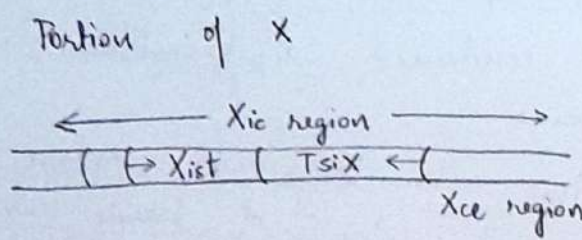 Portion of X
Xic region
→ Xist TsiX ←
Xce region